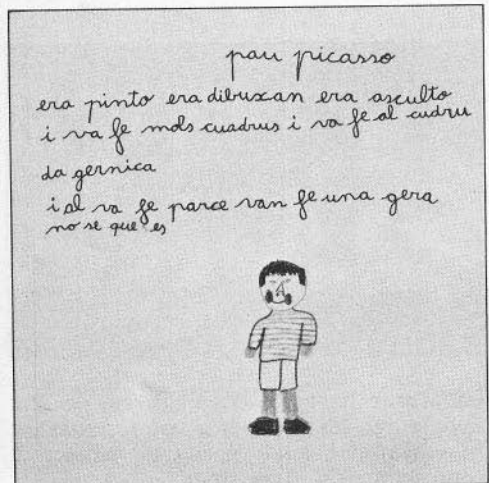 pau picasso
era pinto era dibuxan era asculto
i va fe mols cuadrus i va fe al cudru
da gernica
i al va fe parce van fe una gera
no se que es